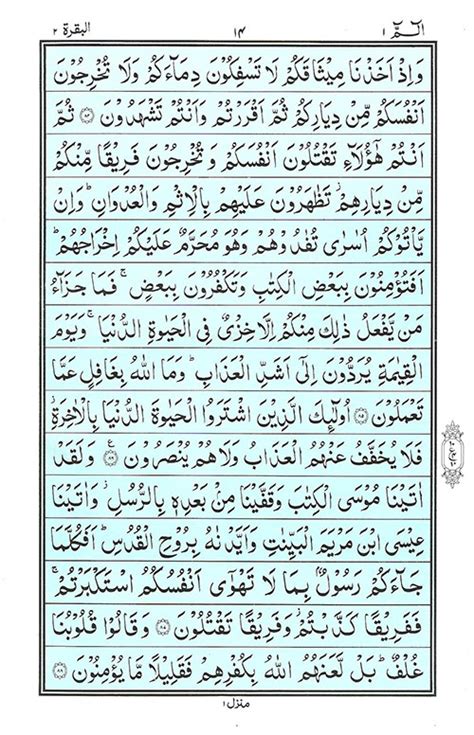 الٓمّٓ ١ ١٤ البقرة ٢
وَاِذْ اَخَذْنَا مِيْثَاقَكُمْ لَا تَسْفِكُوْنَ دِمَآءَكُمْ وَلَا تُخْرِجُوْنَ
اَنْفُسَكُمْ مِّنْ دِيَارِكُمْ ثُمَّ اَقْرَرْتُمْ وَاَنْتُمْ تَشْهَدُوْنَ ۝٨٤ ثُمَّ
اَنْتُمْ هٰٓؤُلَآءِ تَقْتُلُوْنَ اَنْفُسَكُمْ وَتُخْرِجُوْنَ فَرِيْقًا مِّنْكُمْ
مِّنْ دِيَارِهِمْ تَظٰهَرُوْنَ عَلَيْهِمْ بِالْاِثْمِ وَالْعُدْوَانِ ؕ وَاِنْ
يَّاْتُوْكُمْ اُسٰرٰى تُفٰدُوْهُمْ وَهُوَ مُحَرَّمٌ عَلَيْكُمْ اِخْرَاجُهُمْ ؕ
اَفَتُؤْمِنُوْنَ بِبَعْضِ الْكِتٰبِ وَتَكْفُرُوْنَ بِبَعْضٍ ۚ فَمَا جَزَآءُ
مَنْ يَّفْعَلُ ذٰلِكَ مِنْكُمْ اِلَّا خِزْىٌ فِى الْحَيٰوةِ الدُّنْيَا ۚ وَيَوْمَ
الْقِيٰمَةِ يُرَدُّوْنَ اِلٰٓى اَشَدِّ الْعَذَابِ ؕ وَمَا اللّٰهُ بِغَافِلٍ عَمَّا
تَعْمَلُوْنَ ۝٨٥ اُولٰٓئِكَ الَّذِيْنَ اشْتَرَوُا الْحَيٰوةَ الدُّنْيَا بِالْاٰخِرَةِ ؗ
فَلَا يُخَفَّفُ عَنْهُمُ الْعَذَابُ وَلَا هُمْ يُنْصَرُوْنَ ۝٨٦ ع وَلَقَدْ
اٰتَيْنَا مُوْسَى الْكِتٰبَ وَقَفَّيْنَا مِنْۢ بَعْدِهٖ بِالرُّسُلِ ؗ وَاٰتَيْنَا
عِيْسَى ابْنَ مَرْيَمَ الْبَيِّنٰتِ وَاَيَّدْنٰهُ بِرُوْحِ الْقُدُسِ ؕ اَفَكُلَّمَا
جَآءَكُمْ رَسُوْلٌۢ بِمَا لَا تَهْوٰٓى اَنْفُسُكُمُ اسْتَكْبَرْتُمْ ۚ
فَفَرِيْقًا كَذَّبْتُمْ ؗ وَفَرِيْقًا تَقْتُلُوْنَ ۝٨٧ وَقَالُوْا قُلُوْبُنَا
غُلْفٌ ؕ بَلْ لَّعَنَهُمُ اللّٰهُ بِكُفْرِهِمْ فَقَلِيْلًا مَّا يُؤْمِنُوْنَ ۝٨٨
منزل ١